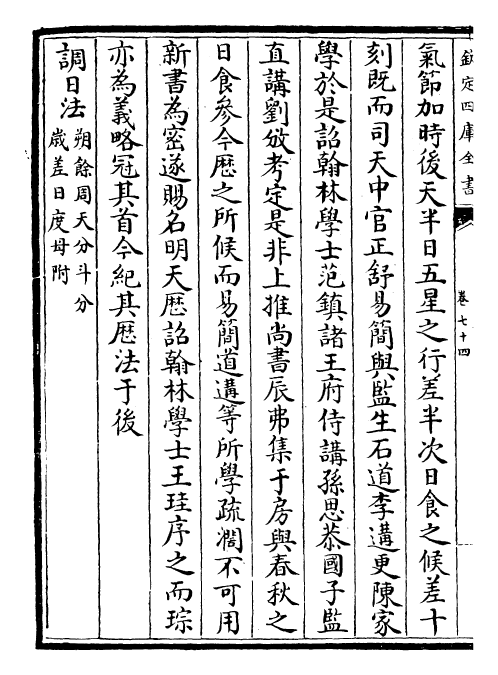 欽定四庫全書
卷七十四
氣節加時後天半日五星之行差半次日食之候差十
刻既而司天中官正舒易簡與監生石道李遘更陳家
學於是詔翰林學士范鎮諸王府侍講孫思恭國子監
直講劉攽考定是非上推尚書辰弗集于房與春秋之
日食參今厯之所候而易簡道遘等所學疏濶不可用
新書為密遂賜名明天厯詔翰林學士王珪序之而琮
亦為義略冠其首今紀其厯法于後
調日法
朔餘周天分斗分
歲差日度母附